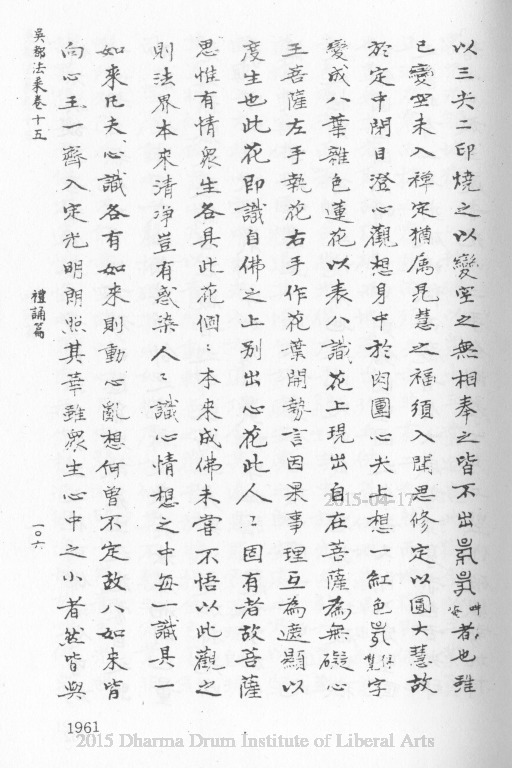 以三尖二印燒之以變空之無相奉之皆不出者也雖
已變空未入禪定猶属見慧之福須入聞思修定以圓大慧故
於定中閉目澄心觀想身中於肉團心尖上想一紅色字
變成八葉雜色蓮花以表八識花上現出自在菩薩為無礙心
王菩薩左手執花右手作花葉開勢言因果事理互為遮顯以
度生也此花即識自佛之上別出心花此人〻固有者故菩薩
思惟有情衆生各具此花個〻本來成佛未嘗不悟以此觀之
則法界本來清净豈有惑染人〻識心情想之中每一識具一
如來凡夫心識各有如來則動心亂想何曾不定故八如來皆
向心王一齊入定光明朗照其華雖衆生心中之小者然皆與
吳都法乘卷十五
禮誦篇
一〇六
1961
2015-04-17
2015 Dharma Drum Institute of Liberal Arts